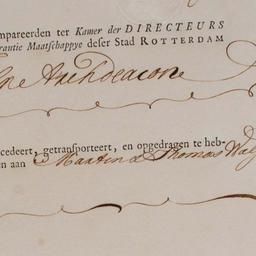 mpareerden ter Kamer der DIRECTEURS
rantie Maatschappye deser Stad ROTTERDAM
Archdeacon
cedeert, getransporteert, en opgedragen te heb-
en aan Maarten & Thomas